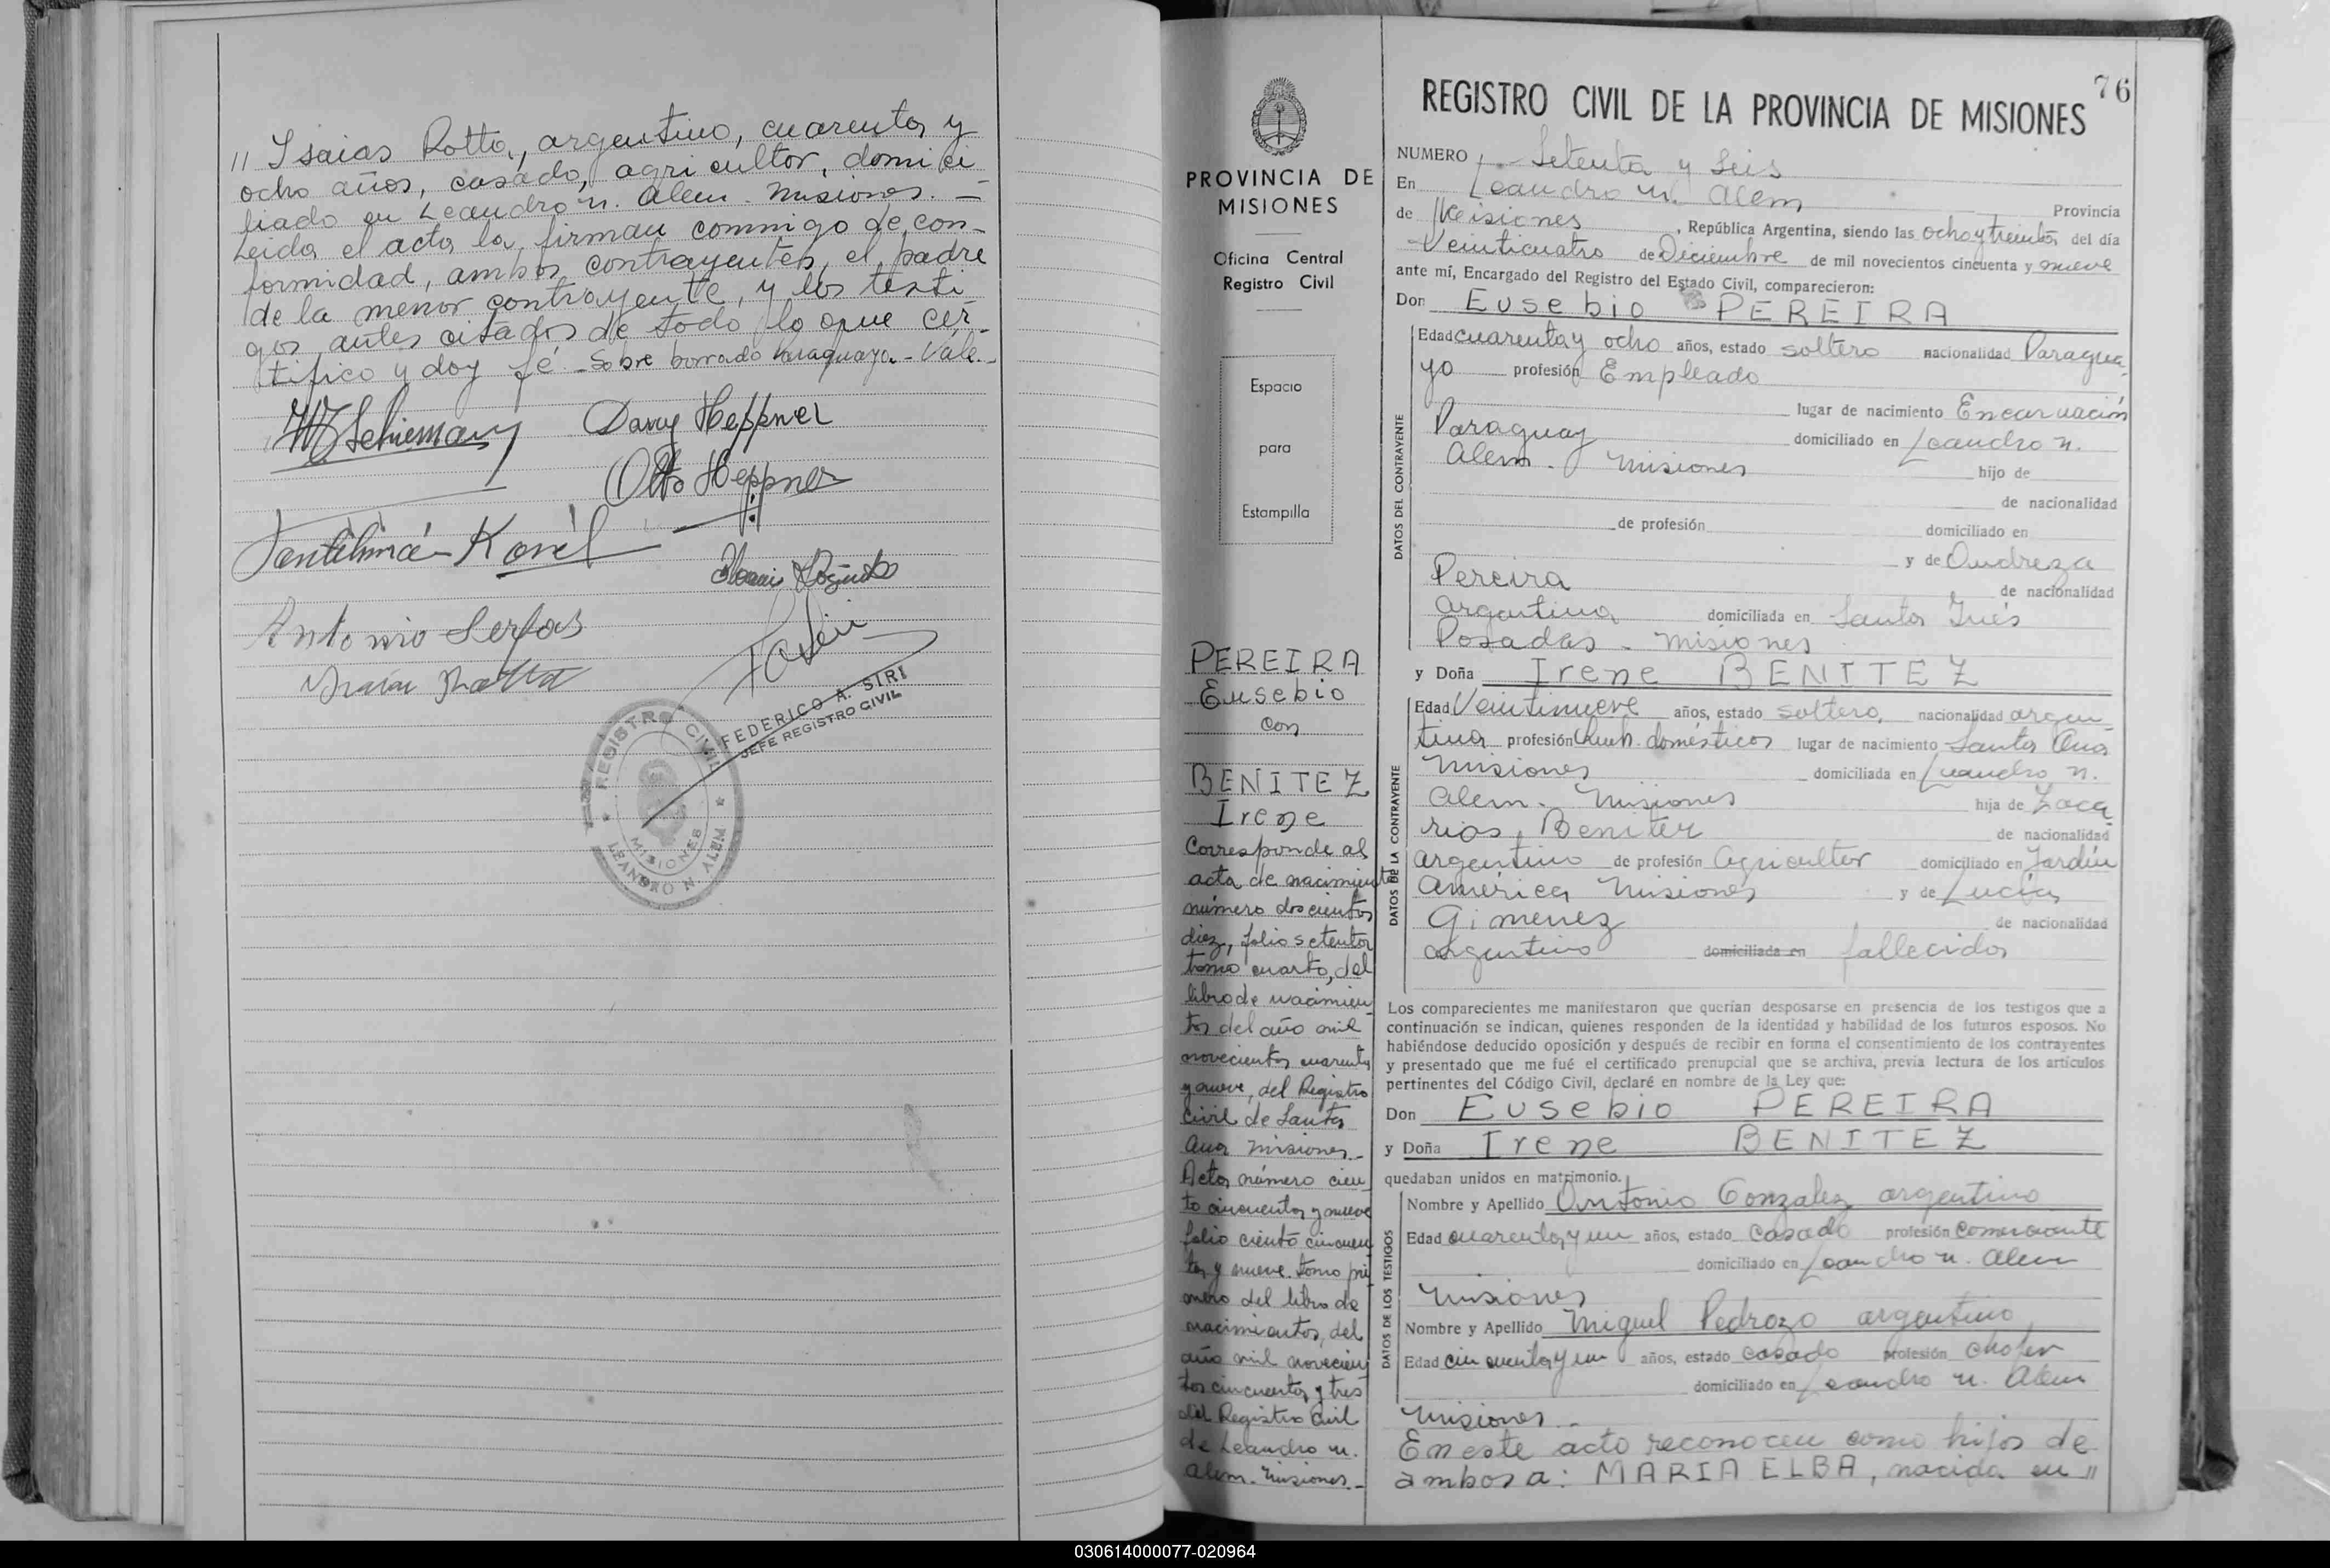 " Isaias Rotta, argentino, cuarenta y
ocho años, casado, agricultor, domici
liado en Leandro N. Alem. Misiones. —
Leida el acta la firman conmigo de con-
formidad, ambos contrayentes, el padre
de la menor contrayente, y los testi
gos antes citados de todo lo que cer-
tifico y doy fé. Sobre borrado Paraguaya - Vale.-
Schiemann
Dary Heppner
Otto Heppner
Antonio
FEDERICO A. SIRI
JEFE REGISTRO CIVIL
REGISTRO CIVIL
MISIONES
LEANDRO N. ALEM
PROVINCIA DE
MISIONES
Oficina Central
Registro Civil
Espacio
para
Estampilla
PEREIRA
Eusebio
con
BENITEZ
Irene
Corresponde al
acta de nacimiento
número doscientos
diez, folio setenta
tomo cuarto, del
libro de nacimien
tos del año mil
novecientos cuarenta
y nueve, del Registro
Civil de Santa
Ana Misiones.-
Acta número cien
to cincuenta y nueve
folio ciento cincuen
ta y nueve tomo pri
mero del libro de
nacimientos, del
año mil novecien
tos cincuenta y tres
del Registro Civil
de Leandro N.
Alem. Misiones.-
76
REGISTRO CIVIL DE LA PROVINCIA DE MISIONES
NUMERO Setenta y Seis
En Leandro N. Alem
de Misiones Provincia
, República Argentina, siendo las ocho y treinta del día
Veinticuatro de Diciembre de mil novecientos cincuenta y nueve
ante mí, Encargado del Registro del Estado Civil, comparecieron:
Don Eusebio PEREIRA
DATOS DEL CONTRAYENTE
Edad cuarenta y ocho años, estado soltero nacionalidad Paragua
yo profesión Empleado
lugar de nacimiento Encarnación
Paraguay domiciliado en Leandro N.
Alem. Misiones hijo de
de nacionalidad
de profesión domiciliado en
y de Andreza
Pereira de nacionalidad
argentina domiciliada en Santa Inés
Posadas - Misiones
y Doña Irene BENITEZ
DATOS DE LA CONTRAYENTE
Edad Veintinueve años, estado soltera, nacionalidad argen
tina profesión Queh. domésticos lugar de nacimiento Santa Ana
Misiones domiciliada en Leandro N.
Alem. Misiones hija de Zaca
rias Benitez de nacionalidad
argentino de profesión agricultor domiciliado en Jardin
América Misiones y de Lucia
Gimenez de nacionalidad
argentina domiciliada en fallecida
Los comparecientes me manifestaron que querían desposarse en presencia de los testigos que a
continuación se indican, quienes responden de la identidad y habilidad de los futuros esposos. No
habiéndose deducido oposición y después de recibir en forma el consentimiento de los contrayentes
y presentado que me fué el certificado prenupcial que se archiva, previa lectura de los artículos
pertinentes del Código Civil, declaré en nombre de la Ley que:
Don Eusebio PEREIRA
y Doña Irene BENITEZ
quedaban unidos en matrimonio.
DATOS DE LOS TESTIGOS
Nombre y Apellido Antonio Gonzalez argentino
Edad cuarenta y un años, estado casado profesión comerciante
domiciliado en Leandro N. Alem
Misiones
Nombre y Apellido Miguel Pedrozo argentino
Edad cincuenta y un años, estado casado profesión chofer
domiciliado en Leandro N. Alem
Misiones.-
En este acto reconocen como hijos de
ambos a: MARIA ELBA, nacida en "
030614000077-020964